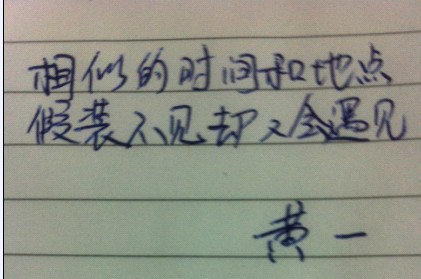 相似的时间和地点
假装不见却又会遇见
黄一